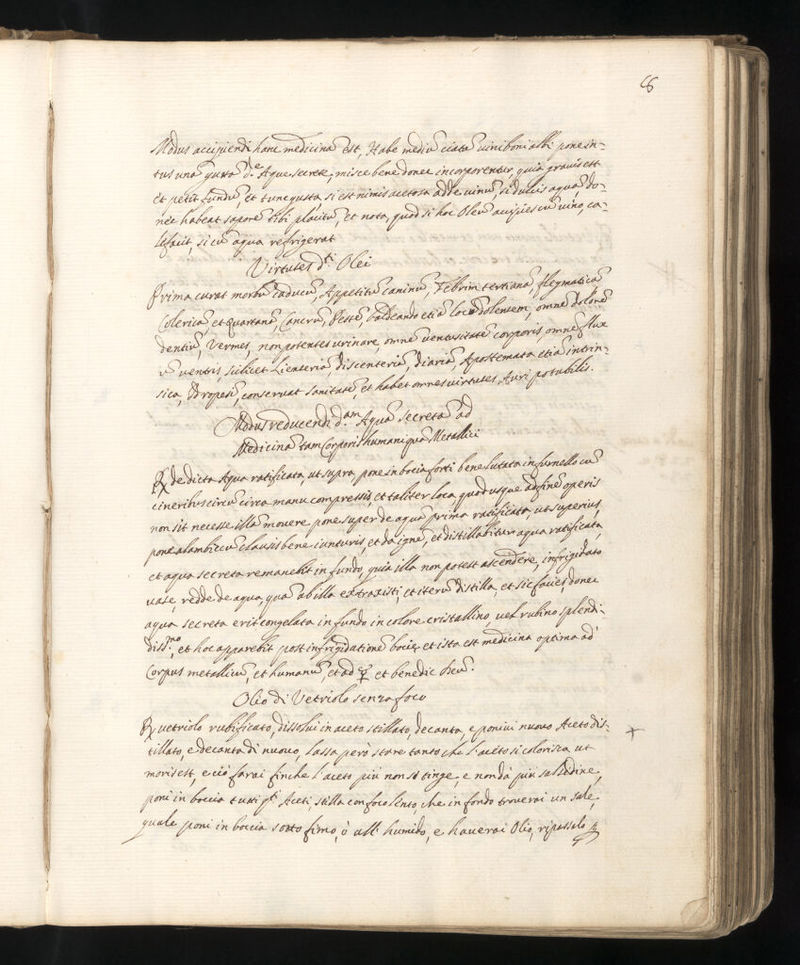 8
Modus accipiendi hanc medicinã est, Habe mediũ ciatũ uini boni albi pone in-
tus una gutta d.ę Aquę secretę, misce bene donec incorporentur, quia grauis est
et petit fundũ, et tunc gusta, si est nimis acetosa adde uinũ, si dulcis aquã, do-
nec habeat saporẽ tibi placitũ, et nota, quod si hoc Oleũ accipies cũ uino, ca-
lefacit, si cũ aqua refrigerat
Virtutes d.ti Olei
Prima curat morbũ caducũ, Appetitũ caninũ, Febrim tertianã, flegmaticã
Colericã et quartanã, Cancrũ, Pestẽ, caldeando etiã locũ dolentem, omnẽ dolorẽ
dentiũ, Vermes, non potentes urinare, omnẽ uentositatẽ corporis, omnẽ flux
ũ uentris, scilicet Lienteriã, discenteriã, diariã, Apostemata etiã intrin-
sica, Idropesiã, conseruat sanitatẽ, et habet omnes uirtutes Auri potabilis.
Modus reducendi d.am Aquã secretã ad
Medicinã tam Corporis humani quã Metallici
℞ de dicta Aqua ratificata, ut supra, pone in bocia forti bene lutata in furnello cũ
cineribus circũ circa manu compressis, et taliter loca, quod usque ad finẽ operis
non sit necesse illã mouere pone super de aquã prima ratificata, ut superius,
pone alambiccũ clausis bene iunturis, et da ignẽ, et distillabitur aqua ratificata,
et aqua secreta remanebit in fundo, quia illa non potest ascendere, infrigidato
uase, redde de aqua, quã ab illa extraxisti, et iterũ distilla, et sic facies, donec
aqua secreta erit congelata in fundo in colore cristallino, uel rubino splendi-
diss.mo, et hoc apparebit post infrigidationẽ bocię et ista est medicina optima ad
Corpus metallicũ, et humanũ, et ad ☿ et benedic Deũ.
Olio di Vetriolo senza foco
℞ uetriolo rubificato, dissolui in aceto stillato, decanta, e poniui nuouo Aceto dis-
tillato, e decanta di nuouo, lassa però stare tanto che l'aceto si colorisca, ut
moris est, e ciò farai finche l'aceto più non si tinge, e non dà più salsedine,
poni in boccia tutti q.ti Aceti stilla con foco lento, che in fondo trouerai un sale,
quale poni in boccia sotto fimo, ò all' humido, e hauerai Olio, ripassalo p